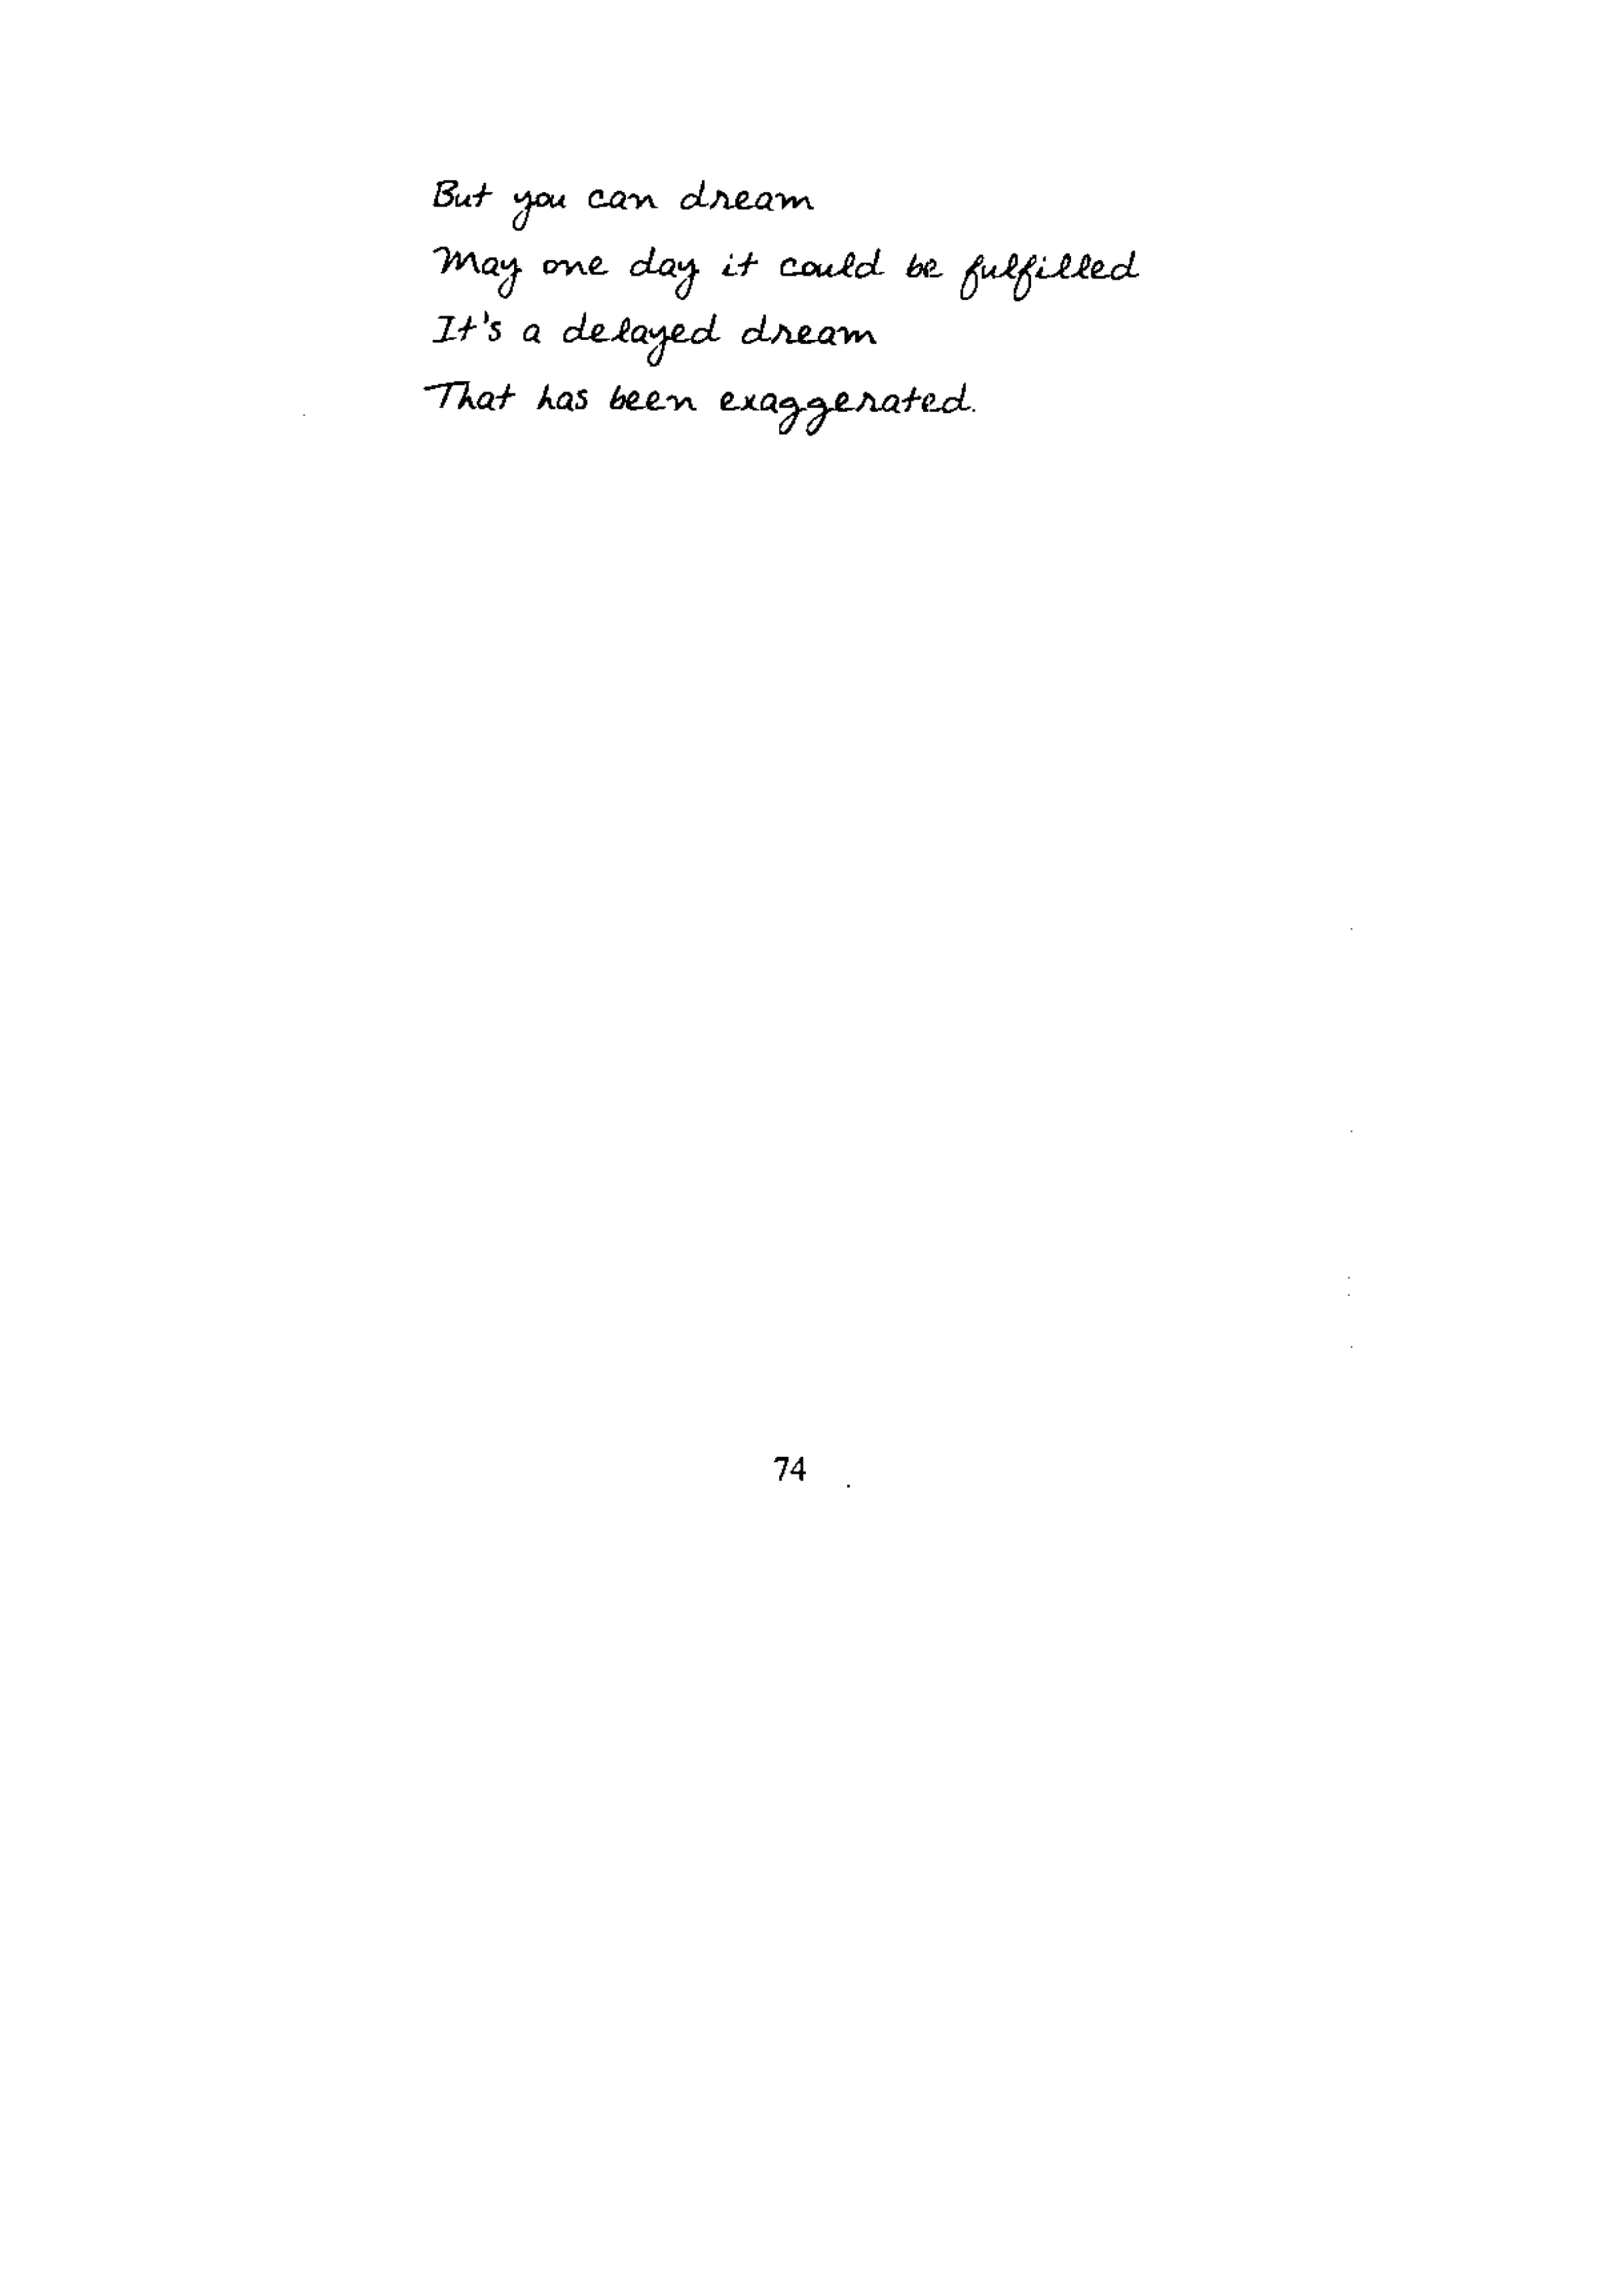 But you can dream
May one day it could be fulfilled
It's a delayed dream
That has been exaggerated.
74